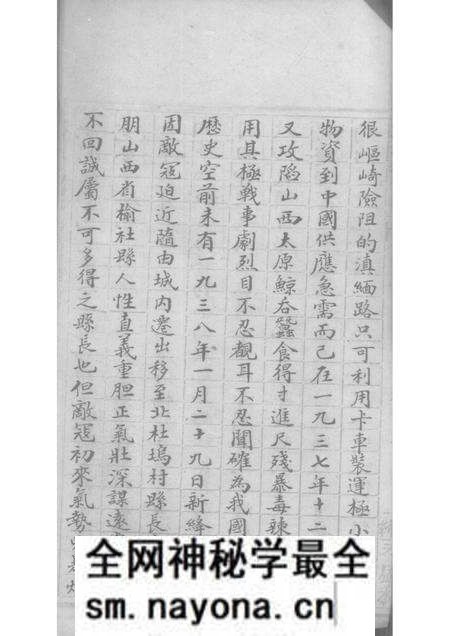 很嶇崎險阻的滇緬路只可利用卡車裝運極小
物資到中國供應急需而已在一九三七年十二
又攻陷山西太原鯨吞蠶食得寸進尺殘暴毒辣
用其極戰事劇烈目不忍覩耳不忍聞確為我國
歷史空前未有一九三八年一月二十九日新絳
因敵冦迫近隨由城內遷出移至北杜塢村縣長
朋山西省榆社縣人性直義重胆正氣壯深謀遠
不回誠屬不可多得之縣長也但敵冦初來氣勢
全网神秘学最全
sm.nayona.cn